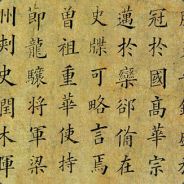 冠於國高華宗
邁於欒郤俻在
史牒可略言焉
曾祖重華使持
節龍驤將軍梁
州刺史潤木暉